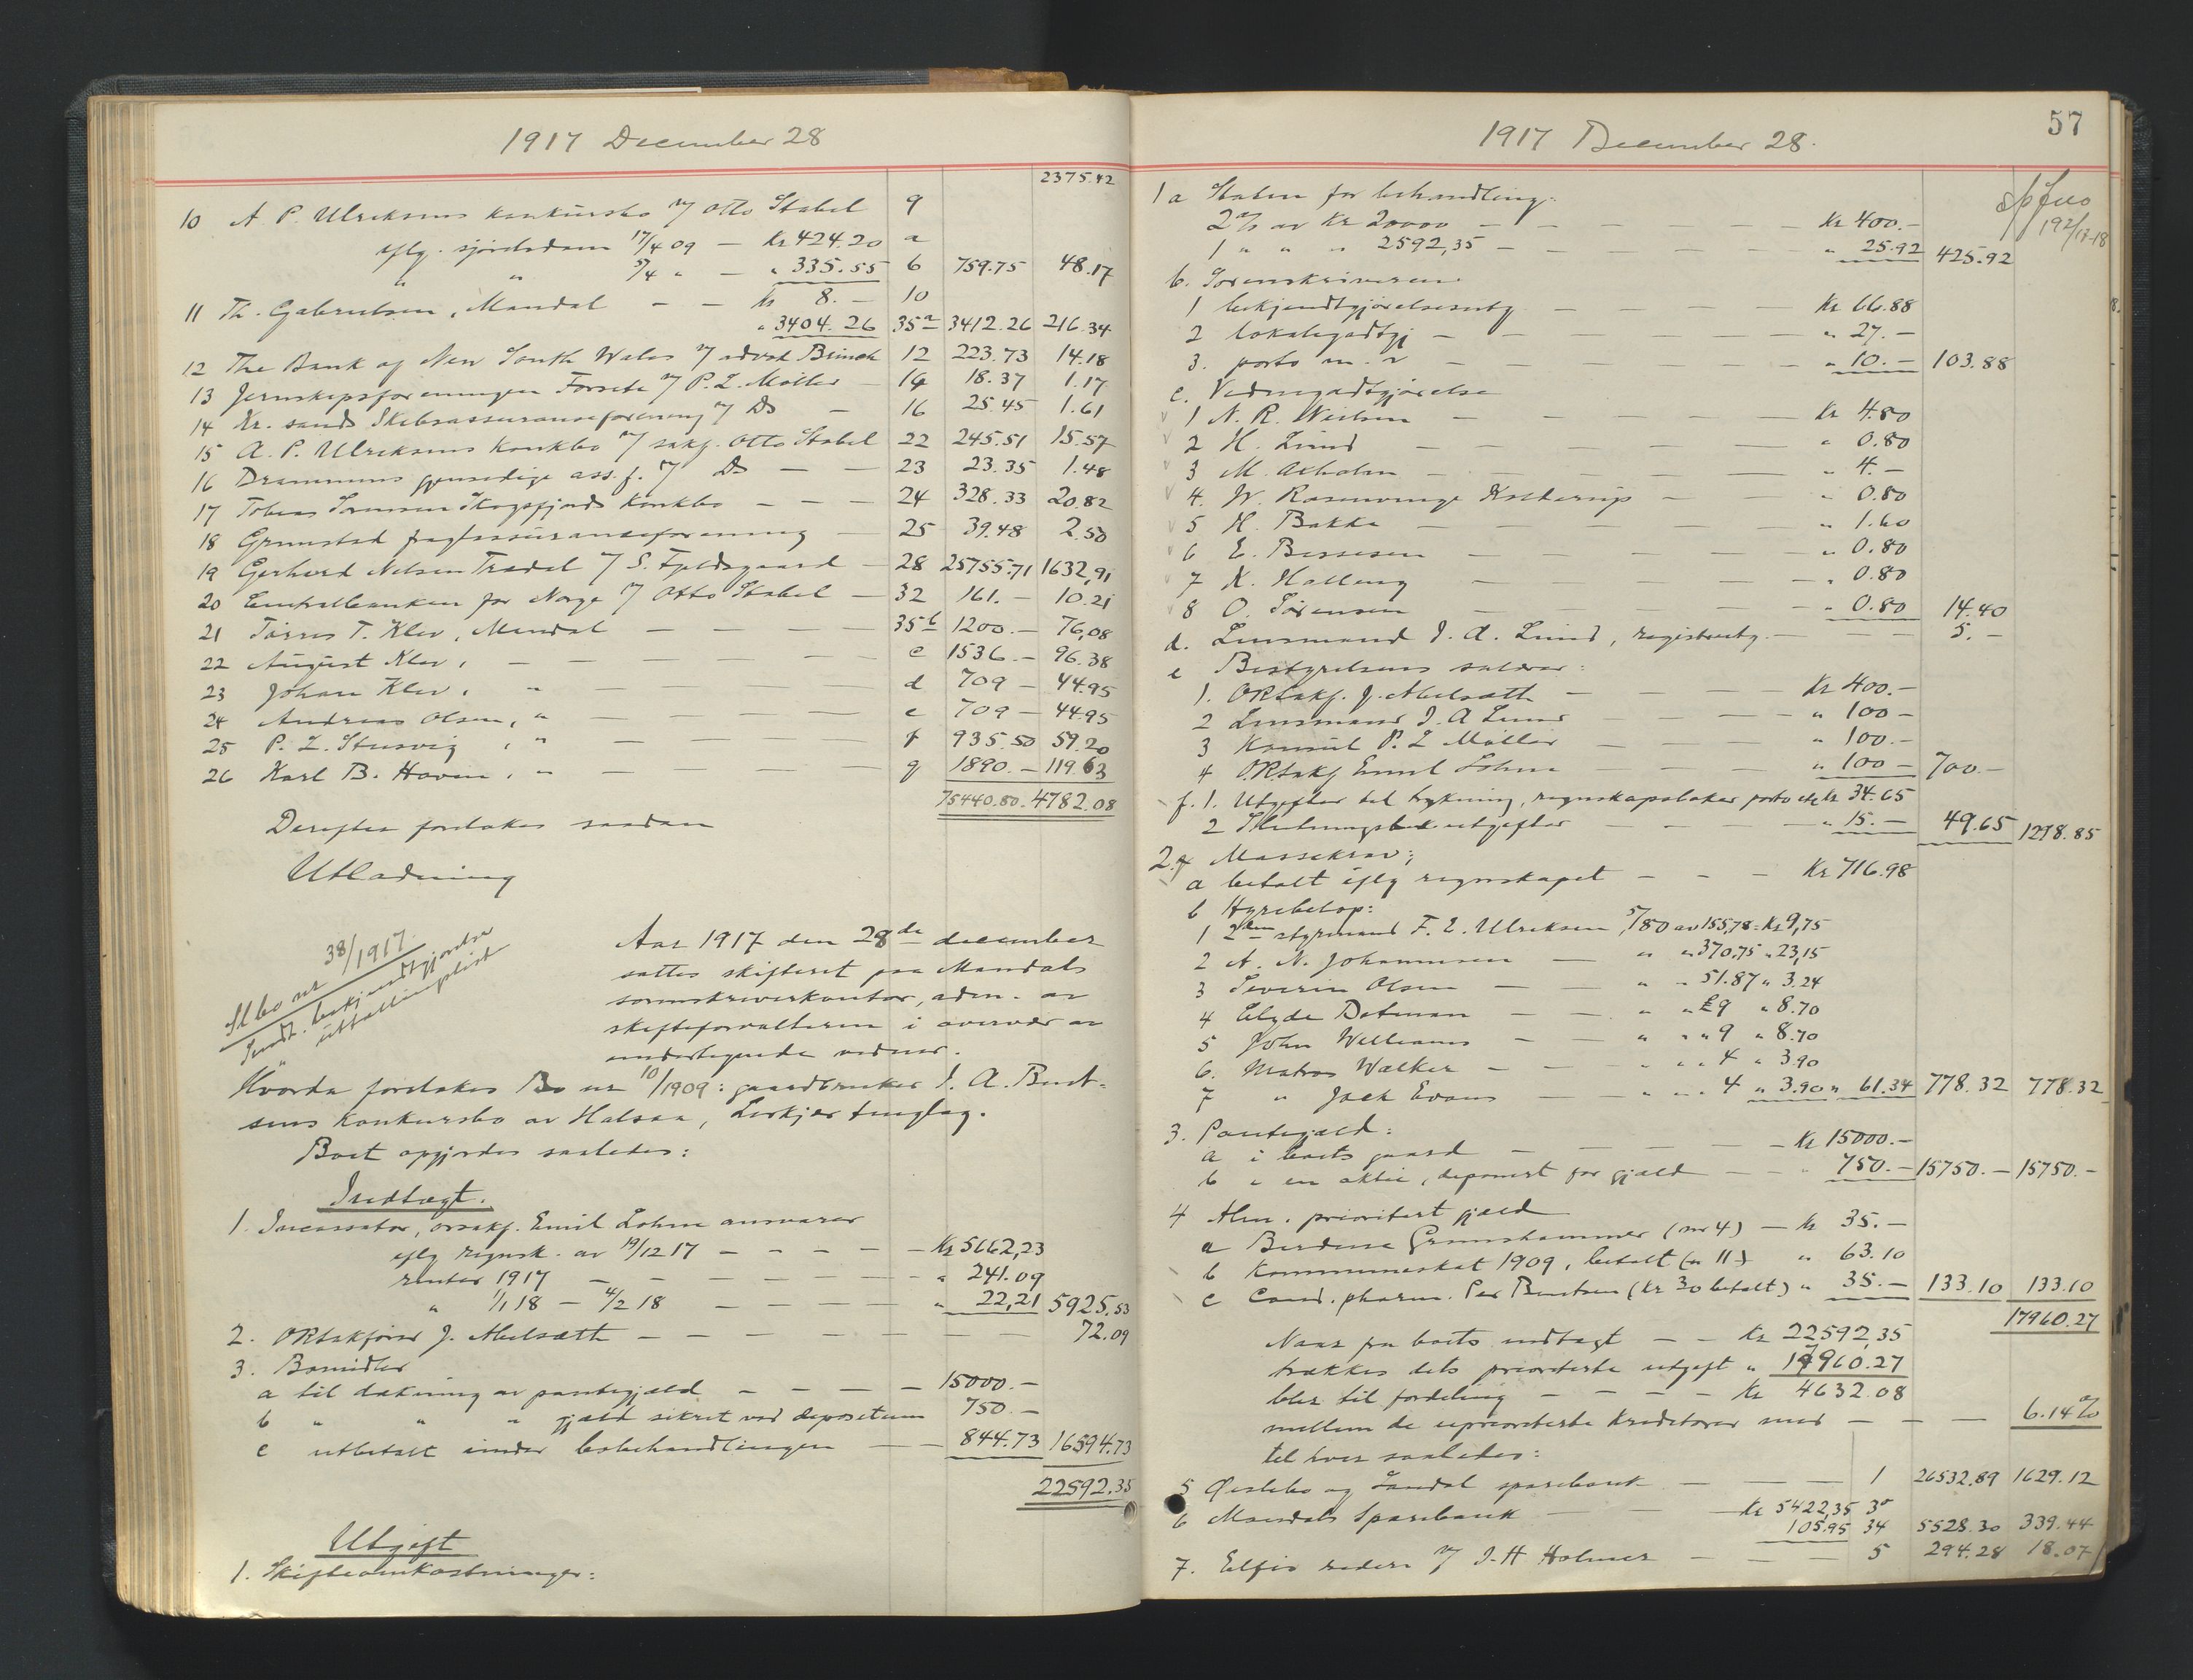 1917 December 28
2375.42
10 A. P. Ulriksens konkursbo v/ Otto Stabel 9
iflg. sjødsdom 17/4 09 — Kr 424.20 a
" " 5/4 " — " 335.55 b 759.75 48.17
11 Th. Gabrielsen, Mandal — — Kr 8.— 10
" 3404.26 35a 3412.26 216.34
12 The Bank of New South Wales v/ advok Brinch 12 223.73 14.18
13 Jernskipsforeningen Forsete v/ P. Z. Møller — 14 18.37 1.17
14 Kr. sands Skibsassuranseforening v/ Do — 16 25.45 1.61
15 A. P. Ulriksens konkbo v/ sakf. Otto Stabel 22 245.51 15.57
16 Drammens gjensidige ass. f. v/ Do — — 23 23.35 1.48
17 Tobias Sørensen Skogsfjords konkbo — — — 24 328.33 20.82
18 Grimstad fragtassuranseforening — 25 39.48 2.50
19 Gerhard Nelsen Tradal v/ S. Fjeldsgaard — 28 25755.71 1632,91
20 Centralbanken for Norge v/ Otto Stabel — 32 161.— 10.21
21 Tørres T. Klev, Mandal — — — — 35b 1200.— 76,08
22 August Klev, — — — — — c 1536.— 96.38
23 Johan Klev, " — — — — d 709 — 44.95
24 Andreas Olsen, " — — — — e 709 — 44.95
25 P. Z. Stusvig, " — — — — f 935.50 59.20
26 Karl B. Hoven, " — — — — g 1890.— 119.63
75440.80. 4782.08
Derefter foretokes saadan
Utlodning
38/1917
Sl bo nr
Sendt. bekjendtgjørelse
" utlodningslist
Aar 1917 den 28de december
sattes skifteret paa Mandals
sorenskriverkontor, adm. av
skifteforvalteren i overvær av
undertegnede vidner.
Hvorda foretokes Bo nr 10/1909: gaardbruker J. A. Bent-
sens konkursbo av Halsaa, Lerkjer tinglag.
Boet opgjordes saaledes:
Indtægt.
1. Incassator, orsakf. Emil Lohne ansvarer
iflg regnsk. av 19/12 17 — — — — — Kr 5662,23
renter 1917 — — — — — — " 241.09
" 1/1 18 — 4/2 18 — — — — " 22,21 5925.53
2. ORsakfører J. Abelsæth — — — — — — — 72.09
3. Bomidler
a til dækning av pantegjæld — — — — 15000.—
b " " " gjæld sikret ved depositum 750.—
c utbetalt under bobehandlingen — — 844.73 16594.73
22592.35
Utgift
1. Skifteomkostninger:
57
1917 December 28.
192/17-18
1 a Staten for behandling:
2 % av Kr 20000 — — — — — Kr 400.—
1 " " " 2592,35 — — — — " 25.92 425.92
b. Sorenskriveren
1 bekjendtgjørelsesutg — — — — Kr 66.88
2 lokalegodtgj — — — — — " 27.—
3. porto m. v — — — — — " 10.— 103.88
c. Vidnegodtgjørelse
1 N. R. Nielsen — — — — Kr 4.80
2 H. Lund — — — — — " 0.80
3 M. Axholm — — — — " 4.—
4. W. Rosenvinge Kolderup — — " 0.80
5 H. Bakke — — — — — " 1.60
6 E. Bessesen — — — — — " 0.80
7 K. Halleng — — — — — " 0.80
8 O. Sørensen — — — — — " 0.80 14.40
d. Lensmand J. A. Lund, registrutg. — — — 5.—
e Bestyrelsens salær:
1. ORsakf. J. Abelsæth — — — — Kr 400.—
2 Lensmand J. A Lund — — — " 100 —
3 Konsul P. Z Møller — — — — " 100.—
4 ORsakf Emil Lohne — — — " 100 — 700.—
f. 1. Utgifter til trykning, regnskapsboker porto etc kr 34.65
2 Slutningsbokutgifter — — — — " 15.— 49.65 1298.85
2. Massekrav:
a betalt iflg regnskapet — — — Kr 716.98
b Hyrebeløp:
1 2den styrmand F. E. Ulriksen, 5/80 av 155,78 = Kr 9,75
2 A. N. Johannesen — " " 370.75 " 23,15
3 Severin Olsen — — " " 51.87 " 3.24
4 Clyde Dotman — — " " £9 " 8.70
5 John Williams — — " " " 9 " 8.70
6. Matros Walker — — " " " 4 " 3.90
7 " Jack Evans — — " " " 4 " 3.90 " 61.34 778.32 778.32
3. Pantegjæld:
a i boets gaard — — — — — Kr 15000.—
b i en aktie, deponert for gjæld — — " 750.— 15750.— 15750.—
4 Alm. prioritert gjæld
a Berdine Grunshammer (nr 4) — Kr 35.—
b Kommuneskat 1909, betalt (" 11) " 63.10
c Cand. pharm. Per Bentsen (kr 30 betalt) " 35.— 133.10 133.10
17960.27
Naar fra boets indtægt — — Kr 22592,35
trækkes dets prioriterte utgift " 17960.27
blir til fordeling — — — — Kr 4632.08
mellem de uprioriterte kreditorer med — — — 6.14%
til hver saaledes:
5 Øislebø og Laudal sparebank — — — 1 26532.89 1629.12
6 Mandals Sparebank — — Kr 5422,35 3a
105.95 34 5528.30 339.44
7. Elfis rederi v/ J. H Holmer — — — 5 294.28 18.07